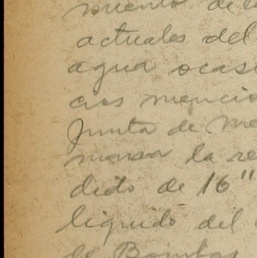 miento de l
actuales del
agua ocasi
cios mencio
Junta de Me
mover la re
dido de 16"
liquido del
de Bombas